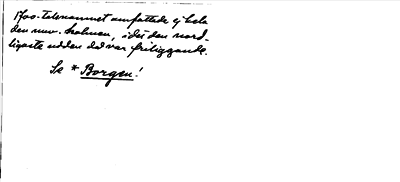 1700-talsnamnet omfattade ej hela
den nuv. holmen, i det den nord-
ligaste udden då var friliggande.
Se * Borgen!